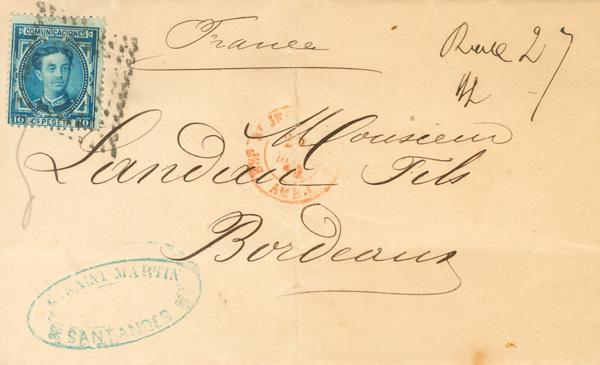 COMUNICACIONES
10 CS PESETA 10
France
Monsieur
Landau Fils
Bordeaux
AMB.
SAINT MARTIN
SANTANDER